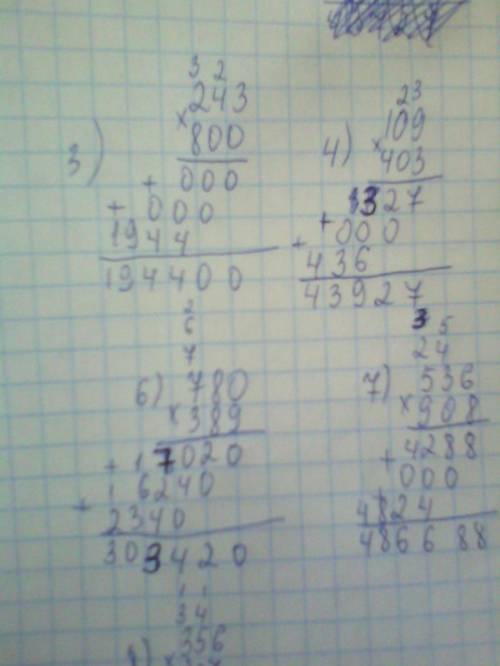 3 2
243
3) × 800
+ 000
+ 000
1944
194400
23
109
4) × 403
+ 327
+ 000
436
43927
2
6
7
6) 780
× 389
+ 17020
+ 16240
2340
303420
3 5
2 4
7) 536
× 908
+ 4288
000
4824
486688
1 1
3 4
356